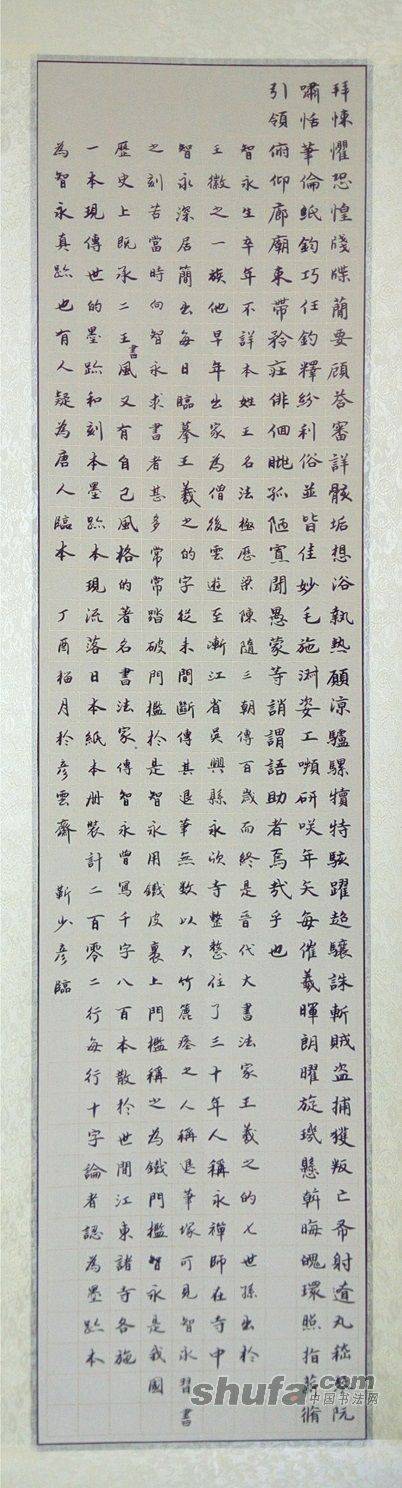 拜悚懼恐惶牋牒簡要顧答審詳骸垢想浴執熱願涼驢騾犢特駭躍超驤誅斬賊盜捕獲叛亡布射遼丸嵇阮
嘯恬筆倫紙鈞巧任釣釋紛利俗並皆佳妙毛施淑姿工顰研咲年矢每催羲暉朗曜旋璣懸斡晦魄環照指薪脩
引領俯仰廊廟束帶矜莊俳佪眺孤陋寡聞愚蒙等誚謂語助者焉哉乎也
智永生卒年不詳本姓王名法極歷梁陳隨三朝傳百歲而終是晉代大書法家王羲之的七世孫出於
王徽之一族他早年出家為僧後雲遊至漸江省吳興縣永欣寺整整住了三十年人稱永禪師在寺中
智永深居簡出每日臨摹王羲之的字從未間斷傳其退筆無數以大竹簏瘞之人稱退筆塚可見智永習書
之刻苦當時向智永求書者甚多常常踏破門檻於是智永用鐵皮裹上門檻稱之為鐵門檻智永是我國
歷史上既承二王書風又有自己風格的著名書法家傳智永曾寫千字八百本散於世間江東諸寺各施
一本現傳世的墨跡和刻本墨跡本現流落日本紙本册裝計二百零二行每行十字論者認為墨跡本
為智永真跡也有人疑為唐人臨本 丁酉月於彥雲齋 靳少彥臨
shufa.com
中国书法网